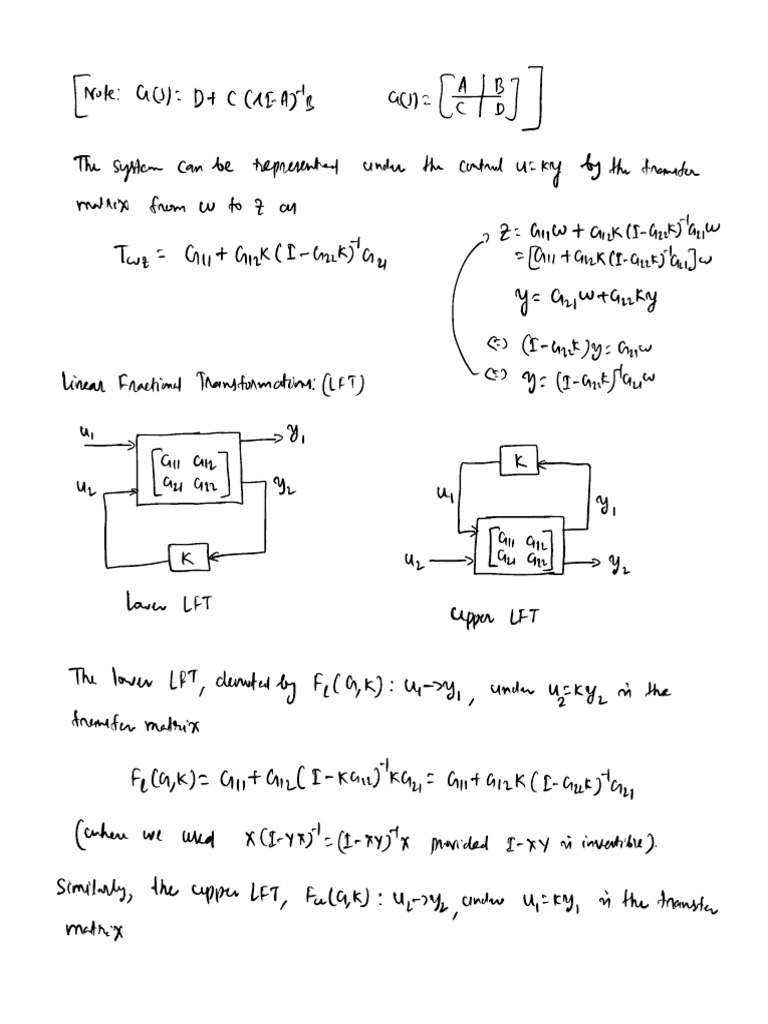 [Note: G(s) = D + C (sI-A)^{-1} B     G(s) = [A | B / C | D] ]
The system can be represented under the control u=Ky by the transfer
matrix from w to z as
T_{wz} = G_{11} + G_{12}K(I-G_{22}K)^{-1}G_{21}
z = G_{11}w + G_{12}K(I-G_{22}K)^{-1}G_{21}w
= [G_{11} + G_{12}K(I-G_{22}K)^{-1}G_{21}]w
y = G_{21}w + G_{22}Ky
⇔ (I-G_{22}K)y = G_{21}w
⇔ y = (I-G_{22}K)^{-1}G_{21}w
Linear Fractional Transformations: (LFT)
u_1 y_1
[G_{11} G_{12}
G_{21} G_{22}]
u_2 y_2
K
Lower LFT
K
u_1 y_1
[G_{11} G_{12}
G_{21} G_{22}]
u_2 y_2
Upper LFT
The lower LFT, denoted by F_l(G,K): u_1→y_1, under u_2=Ky_2 is the
transfer matrix
F_l(G,K) = G_{11} + G_{12}(I-KG_{22})^{-1}KG_{21} = G_{11} + G_{12}K(I-G_{22}K)^{-1}G_{21}
(where we used X(I-YX)^{-1} = (I-XY)^{-1}X provided I-XY is invertible).
Similarly, the upper LFT, F_u(G,K): u_2→y_2, under u_1=Ky_1 is the transfer
matrix